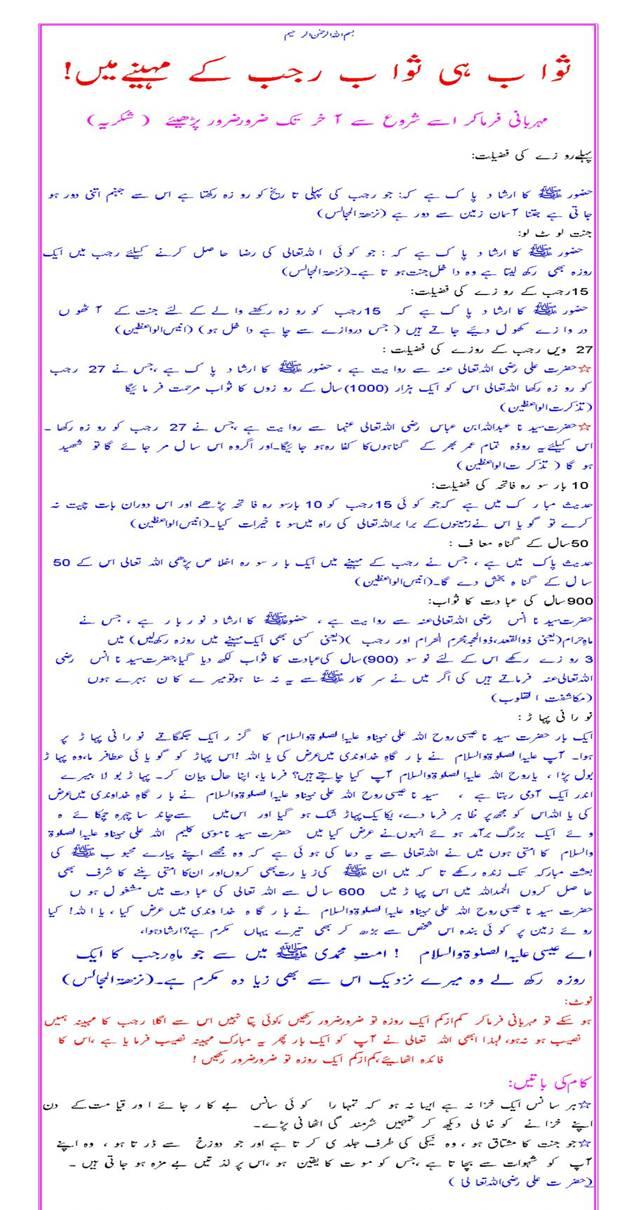 بسم اللہ الرحمٰن الرحیم
ثواب ہی ثواب رجب کے مہینے میں!
مہربانی فرما کر اسے شروع سے آخر تک ضرور ضرور پڑھیئے (شکریہ)
پہلے روزے کی فضیلت:
حضور ﷺ کا ارشاد پاک ہے کہ: جو رجب کی پہلی تاریخ کو روزہ رکھتا ہے اس سے جہنم اتنی دور ہو
جاتی ہے جتنا آسمان زمین سے دور ہے (نزھۃ المجالس)
جنت لوٹ لو:
حضور ﷺ کا ارشاد پاک ہے کہ: جو کوئی اللہ تعالی کی رضا حاصل کرنے کیلئے رجب میں ایک
روزہ بھی رکھ لیتا ہے وہ داخل جنت ہوتا ہے۔(نزھۃ المجالس)
15رجب کے روزے کی فضیلت:
حضور ﷺ کا ارشاد پاک ہے کہ 15رجب کو روزہ رکھنے والے کے لئے جنت کے آٹھوں
دروازے کھول دیئے جاتے ہیں (جس دروازے سے چاہے داخل ہو) (انیس الواعظین)
27 ویں رجب کے روزے کی فضیلت:
☆حضرت علی رضی اللہ تعالی عنہ سے روایت ہے، حضور ﷺ کا ارشاد پاک ہے، جس نے 27 رجب
کو روزہ رکھا اللہ تعالی اس کو ایک ہزار (1000)سال کے روزوں کا ثواب مرحمت فرمائیگا
(تذکرت الواعظین)
☆حضرت سیدنا عبداللہ ابن عباس رضی اللہ تعالی عنہما سے روایت ہے جس نے 27 رجب کو روزہ رکھا۔
اس کیلئے یہ روزہ تمام عمر بھر کے گناہوں کا کفارہ ہو جائیگا۔اور اگر وہ اس سال مر جائے گا تو شھید
ہو گا (تذکرت الواعظین)
10 بار سورہ فاتحہ کی فضیلت:
حدیث مبارک میں ہے کہ جو کوئی 15رجب کو 10 بار سورہ فاتحہ پڑھے اور اس دوران بات چیت نہ
کرے تو گویا اس نے زمینوں کے برابر اللہ تعالی کی راہ میں سونا خیرات کیا۔(انیس الواعظین)
50سال کے گناہ معاف:
حدیث پاک میں ہے، جس نے رجب کے مہینے میں ایک بار سورہ اخلاص پڑھی اللہ تعالی اس کے 50
سال کے گناہ بخش دے گا۔(انیس الواعظین)
900سال کی عبادت کا ثواب:
حضرت سیدنا انس رضی اللہ تعالی عنہ سے روایت ہے، حضور ﷺ کا ارشاد نور بار ہے، جس نے
ماہِ حرام(یعنی ذوالقعد،ذوالحجہ محرم الحرام اور رجب )(یعنی کسی بھی ایک مہینے میں روزہ رکھ لیں) میں
3 روزے رکھے اس کے لئے نو سو (900)سال کی عبادت کا ثواب لکھ دیا گیا حضرت سیدنا انس رضی
اللہ تعالی عنہ فرماتے ہیں کی اگر میں نے سرکار ﷺ سے یہ نہ سنا ہو تو میرے کان بہرے ہوں
(مکاشفت القلوب)
نورانی پہاڑ:
ایک بار حضرت سیدنا عیسی روح اللہ علی نبینا و علیہ الصلوۃ والسلام کا گزر ایک جگمگاتے نورانی پہاڑ پر
ہوا۔ آپ علیہ الصلوۃ والسلام نے بارگاہ خداوندی میں عرض کی یا اللہ !اس پہاڑ کو گویائی عطا فرما،وہ پہاڑ
بول پڑا، یا روح اللہ علیہ الصلوۃ والسلام آپ کیا چاہتے ہیں؟ فرمایا، اپنا حال بیان کر۔ پہاڑ بولا میرے
اندر ایک آدمی رہتا ہے، سیدنا عیسی روح اللہ علی نبینا و علیہ الصلوۃ والسلام نے بارگاہ خداوندی میں عرض
کی یا اللہ اس کو مجھ پر ظاہر فرما دے، یکایک پہاڑ شک ہو گیا اور اس میں سے چاند سا چہرہ چمکائے ہ
وئے ایک بزرگ برآمد ہوئے انہوں نے عرض کیا میں حضرت سیدنا موسی کلیم اللہ علی نبینا و علیہ الصلوۃ
والسلام کا امتی ہوں میں نے اللہ تعالی سے یہ دعا کی ہوئی ہے کہ وہ مجھے اپنے پیارے محبوب ﷺ کی
بعثت مبارکہ تک زندہ رکھے تاکہ میں ان ﷺ کی زیارت بھی کروں اور ان کا امتی بننے کا شرف بھی
حاصل کروں الحمدللہ میں اس پہاڑ میں 600 سال سے اللہ تعالی کی عبادت میں مشغول ہوں
حضرت سیدنا عیسی روح اللہ علی نبینا و علیہ الصلوۃ والسلام نے بارگاہ خداوندی میں عرض کیا، یا اللہ! کیا
روئے زمین پر کوئی بندہ اس شخص سے بڑھ کر بھی تیرے یہاں مکرم ہے؟ ارشاد ہوا،
اے عیسی علیہ الصلوۃ والسلام ! امتِ محمدی ﷺ میں سے جو ماہِ رجب کا ایک
روزہ رکھ لے وہ میرے نزدیک اس سے بھی زیادہ مکرم ہے۔(نزھۃ المجالس)
نوٹ:
ہو سکے تو مہربانی فرما کر کم از کم ایک روزہ تو ضرور ضرور رکھیں ،کوئی پتا نہیں اس سے اگلا رجب کا مہینہ ہمیں
نصیب ہو نہ ہو، لہذا ابھی اللہ تعالی نے آپ کو ایک بار پھر یہ مبارک مہینہ نصیب فرمایا ہے ،اس کا
فائدہ اٹھایئے،کم از کم ایک روزہ تو ضرور ضرور رکھیں !
کام کی باتیں:
☆ہر سانس ایک خزانہ ہے ایسا نہ ہو کہ تمہارا کوئی سانس بے کار جائے اور قیامت کے دن
اپنے خزانے کو خالی دیکھ کر تمہیں شرمندگی اٹھانی پڑے۔
☆جو جنت کا مشتاق ہو، وہ نیکی کی طرف جلدی کرتا ہے اور جو دوزخ سے ڈرتا ہو، وہ اپنے
آپ کو شہوات سے بچاتا ہے،جس کو موت کا یقین ہو ،اس پر لذتیں بے مزہ ہو جاتی ہیں۔
(حضرت علی رضی اللہ تعالی)